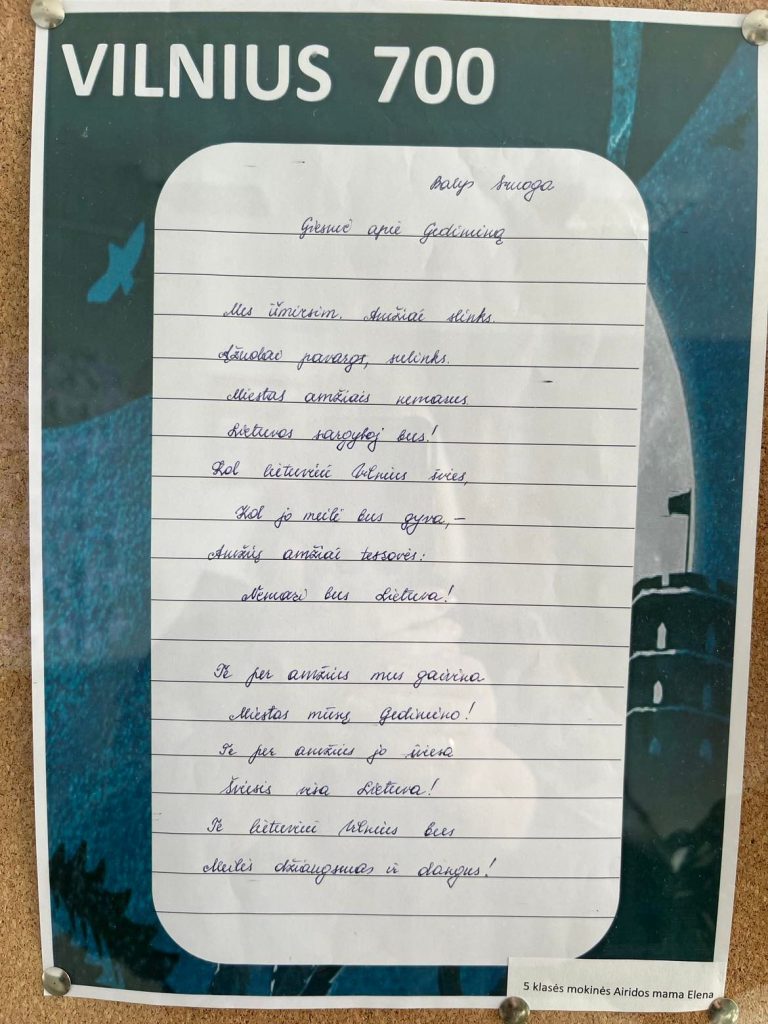 VILNIUS 700
Balys Sruoga
Giesmė apie Gediminą
Mes užmirsim. Amžiai slinks.
Ąžuolai pavargs, sulinks.
Miestas amžiais nemarus
Lietuvos sargyboj bus!
Kol lietuviui Vilnius švies,
Kol jo meilė bus gyva, –
Amžių amžiai tessovės:
Nemari bus Lietuva!
Te per amžius mus gaivina
Miestas mūsų Gedimino!
Te per amžius jo šviesa
Šviesis visa Lietuva!
Te lietuviui Vilnius bus
Meilės džiaugsmas ir dangus!
5 klasės mokinės Airidos mama Elena